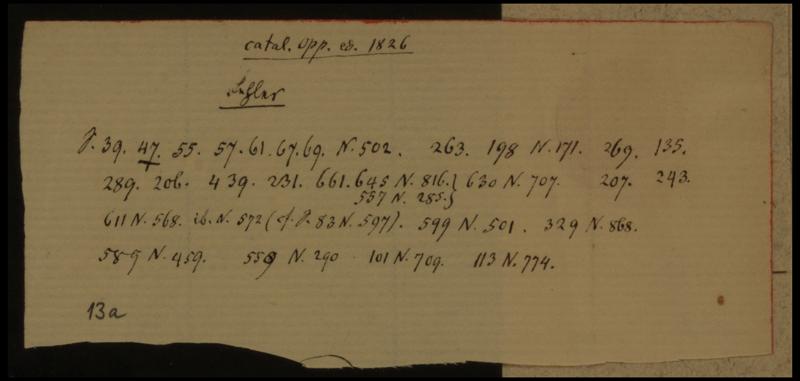 catal. opp. ed. 1826
Fehler
p. 39. 47. 55. 57. 61. 67. 69. N. 502. 263. 198 N. 171. 269. 135.
289. 206. 439. 231. 661. 645 N. 816. } 630 N. 707. 207. 243.
557 N. 285. }
611 N. 568. ib. N. 572 (cf. p. 83 N. 597). 599 N. 501. 329 N. 868.
589 N. 459. 559 N. 290. 101 N. 709. 113 N. 774.
13a